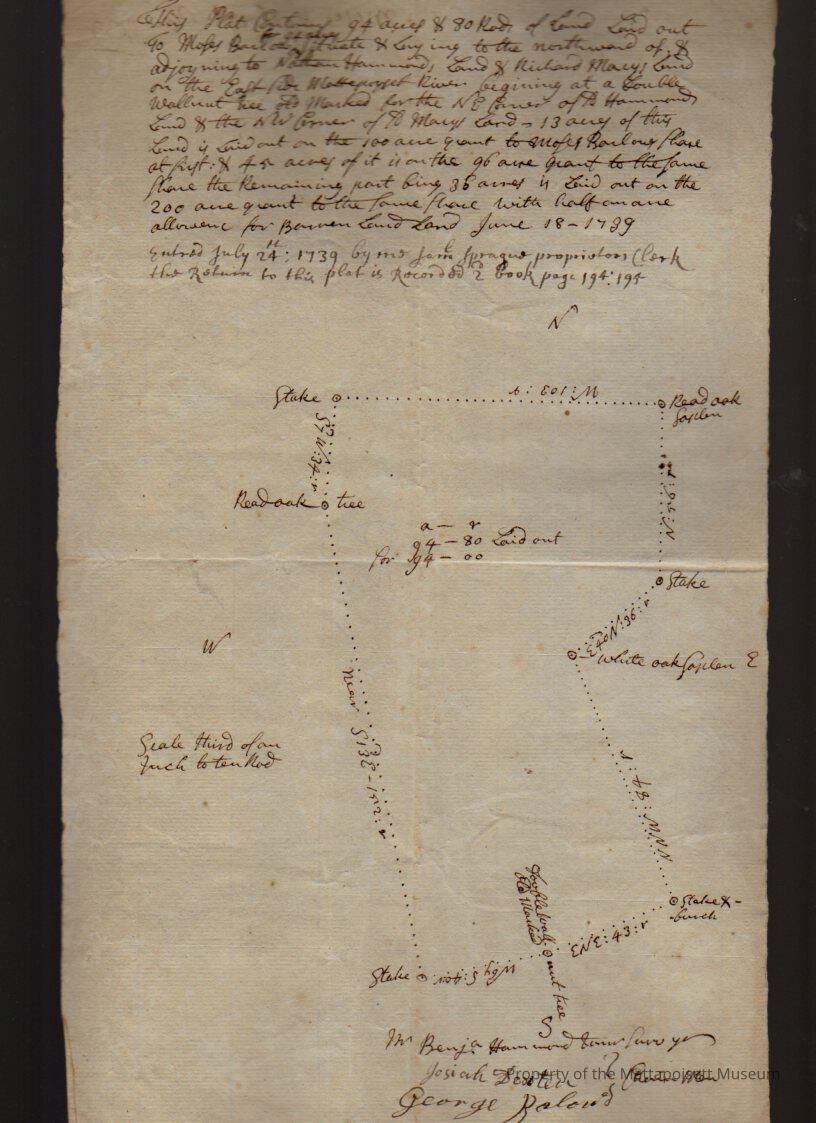 This Plat Contains 94 acres & 80 Rods of Land Laid out
To Moses Barlow Situate & Lying to the northward of &
adjoyning to Nathan Hammonds Land & Richard Macys Land
on the East side Mattapoyset River begining at a Double
Wallnut tree old Marked for the NE Corner of sd Hammonds
Land & the NW Corner of sd Macys Land – 13 acres of this
Land is Laid out on the 100 acre grant to Moses Barlows Share
at first: & 45 acres of it is on the 96 acre grant to the same
Share the Remaining part being 36 acres is Laid out on the
200 acre grant to the same Share with half an acre
allowenc for Barren Land Land June 18 – 1739
Entred July 24th: 1739 by me Saml Sprague proprietors Clerk
the Return to this plat is Recorded 2d book page 194: 195
N
Stake
W: 103: r
Read oak
Saplen
S 7 W: 34: r
Read oak tree
a – r
94 – 80 Laid out
for 94 – 00
Stake
E 40 N: 36: r
White oak Saplen E
W
near S 13 E – 152: r
Scale third of an
Inch to ten Rod
NNW: 84: r
Double wall nut tree
old Marked
Stake &
burch
ENE: 43: r
Stake
S
Mr Benja Hammond Surveyer
Josiah Dexter
George Barlow
Chainmen
Property of the Mattapoisett Museum